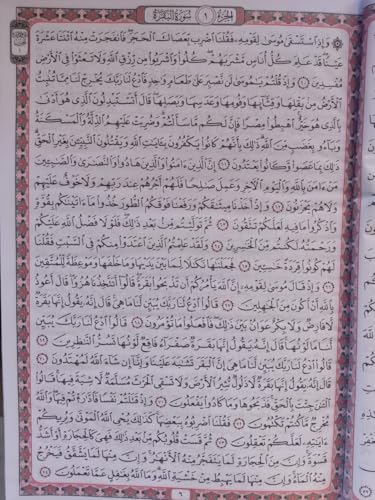 الجزء ١ سورة البقرة
۞ وَإِذِ ٱسْتَسْقَىٰ مُوسَىٰ لِقَوْمِهِۦ فَقُلْنَا ٱضْرِب بِّعَصَاكَ ٱلْحَجَرَ فَٱنفَجَرَتْ مِنْهُ ٱثْنَتَا عَشْرَةَ
عَيْنًا قَدْ عَلِمَ كُلُّ أُنَاسٍ مَّشْرَبَهُمْ كُلُوا۟ وَٱشْرَبُوا۟ مِن رِّزْقِ ٱللَّهِ وَلَا تَعْثَوْا۟ فِى ٱلْأَرْضِ
مُفْسِدِينَ ٦٠ وَإِذْ قُلْتُمْ يَٰمُوسَىٰ لَن نَّصْبِرَ عَلَىٰ طَعَامٍ وَٰحِدٍ فَٱدْعُ لَنَا رَبَّكَ يُخْرِجْ لَنَا مِمَّا تُنۢبِتُ
ٱلْأَرْضُ مِنۢ بَقْلِهَا وَقِثَّآئِهَا وَفُومِهَا وَعَدَسِهَا وَبَصَلِهَا قَالَ أَتَسْتَبْدِلُونَ ٱلَّذِى هُوَ أَدْنَىٰ
بِٱلَّذِى هُوَ خَيْرٌ ٱهْبِطُوا۟ مِصْرًا فَإِنَّ لَكُم مَّا سَأَلْتُمْ وَضُرِبَتْ عَلَيْهِمُ ٱلذِّلَّةُ وَٱلْمَسْكَنَةُ
وَبَآءُو بِغَضَبٍ مِّنَ ٱللَّهِ ذَٰلِكَ بِأَنَّهُمْ كَانُوا۟ يَكْفُرُونَ بِـَٔايَٰتِ ٱللَّهِ وَيَقْتُلُونَ ٱلنَّبِيِّـۧنَ بِغَيْرِ ٱلْحَقِّ
ذَٰلِكَ بِمَا عَصَوا۟ وَّكَانُوا۟ يَعْتَدُونَ ٦١ إِنَّ ٱلَّذِينَ ءَامَنُوا۟ وَٱلَّذِينَ هَادُوا۟ وَٱلنَّصَٰرَىٰ وَٱلصَّٰبِـِٔينَ
مَنْ ءَامَنَ بِٱللَّهِ وَٱلْيَوْمِ ٱلْـَٔاخِرِ وَعَمِلَ صَٰلِحًا فَلَهُمْ أَجْرُهُمْ عِندَ رَبِّهِمْ وَلَا خَوْفٌ عَلَيْهِمْ
وَلَا هُمْ يَحْزَنُونَ ٦٢ وَإِذْ أَخَذْنَا مِيثَٰقَكُمْ وَرَفَعْنَا فَوْقَكُمُ ٱلطُّورَ خُذُوا۟ مَآ ءَاتَيْنَٰكُم بِقُوَّةٍ
وَٱذْكُرُوا۟ مَا فِيهِ لَعَلَّكُمْ تَتَّقُونَ ٦٣ ثُمَّ تَوَلَّيْتُم مِّنۢ بَعْدِ ذَٰلِكَ فَلَوْلَا فَضْلُ ٱللَّهِ عَلَيْكُمْ
وَرَحْمَتُهُۥ لَكُنتُم مِّنَ ٱلْخَٰسِرِينَ ٦٤ وَلَقَدْ عَلِمْتُمُ ٱلَّذِينَ ٱعْتَدَوْا۟ مِنكُمْ فِى ٱلسَّبْتِ فَقُلْنَا
لَهُمْ كُونُوا۟ قِرَدَةً خَٰسِـِٔينَ ٦٥ فَجَعَلْنَٰهَا نَكَٰلًا لِّمَا بَيْنَ يَدَيْهَا وَمَا خَلْفَهَا وَمَوْعِظَةً لِّلْمُتَّقِينَ
٦٦ وَإِذْ قَالَ مُوسَىٰ لِقَوْمِهِۦٓ إِنَّ ٱللَّهَ يَأْمُرُكُمْ أَن تَذْبَحُوا۟ بَقَرَةً قَالُوٓا۟ أَتَتَّخِذُنَا هُزُوًا قَالَ أَعُوذُ
بِٱللَّهِ أَنْ أَكُونَ مِنَ ٱلْجَٰهِلِينَ ٦٧ قَالُوا۟ ٱدْعُ لَنَا رَبَّكَ يُبَيِّن لَّنَا مَا هِىَ قَالَ إِنَّهُۥ يَقُولُ إِنَّهَا بَقَرَةٌ
لَّا فَارِضٌ وَلَا بِكْرٌ عَوَانٌۢ بَيْنَ ذَٰلِكَ فَٱفْعَلُوا۟ مَا تُؤْمَرُونَ ٦٨ قَالُوا۟ ٱدْعُ لَنَا رَبَّكَ يُبَيِّن
لَّنَا مَا لَوْنُهَا قَالَ إِنَّهُۥ يَقُولُ إِنَّهَا بَقَرَةٌ صَفْرَآءُ فَاقِعٌ لَّوْنُهَا تَسُرُّ ٱلنَّٰظِرِينَ ٦٩
قَالُوا۟ ٱدْعُ لَنَا رَبَّكَ يُبَيِّن لَّنَا مَا هِىَ إِنَّ ٱلْبَقَرَ تَشَٰبَهَ عَلَيْنَا وَإِنَّآ إِن شَآءَ ٱللَّهُ لَمُهْتَدُونَ ٧٠
قَالَ إِنَّهُۥ يَقُولُ إِنَّهَا بَقَرَةٌ لَّا ذَلُولٌ تُثِيرُ ٱلْأَرْضَ وَلَا تَسْقِى ٱلْحَرْثَ مُسَلَّمَةٌ لَّا شِيَةَ فِيهَا قَالُوا۟
ٱلْـَٰٔنَ جِئْتَ بِٱلْحَقِّ فَذَبَحُوهَا وَمَا كَادُوا۟ يَفْعَلُونَ ٧١ وَإِذْ قَتَلْتُمْ نَفْسًا فَٱدَّٰرَْٰٔتُمْ فِيهَا وَٱللَّهُ
مُخْرِجٌ مَّا كُنتُمْ تَكْتُمُونَ ٧٢ فَقُلْنَا ٱضْرِبُوهُ بِبَعْضِهَا كَذَٰلِكَ يُحْىِ ٱللَّهُ ٱلْمَوْتَىٰ وَيُرِيكُمْ
ءَايَٰتِهِۦ لَعَلَّكُمْ تَعْقِلُونَ ٧٣ ثُمَّ قَسَتْ قُلُوبُكُم مِّنۢ بَعْدِ ذَٰلِكَ فَهِىَ كَٱلْحِجَارَةِ أَوْ أَشَدُّ
قَسْوَةً وَإِنَّ مِنَ ٱلْحِجَارَةِ لَمَا يَتَفَجَّرُ مِنْهُ ٱلْأَنْهَٰرُ وَإِنَّ مِنْهَا لَمَا يَشَّقَّقُ فَيَخْرُجُ
مِنْهُ ٱلْمَآءُ وَإِنَّ مِنْهَا لَمَا يَهْبِطُ مِنْ خَشْيَةِ ٱللَّهِ وَمَا ٱللَّهُ بِغَٰفِلٍ عَمَّا تَعْمَلُونَ ٧٤
٦